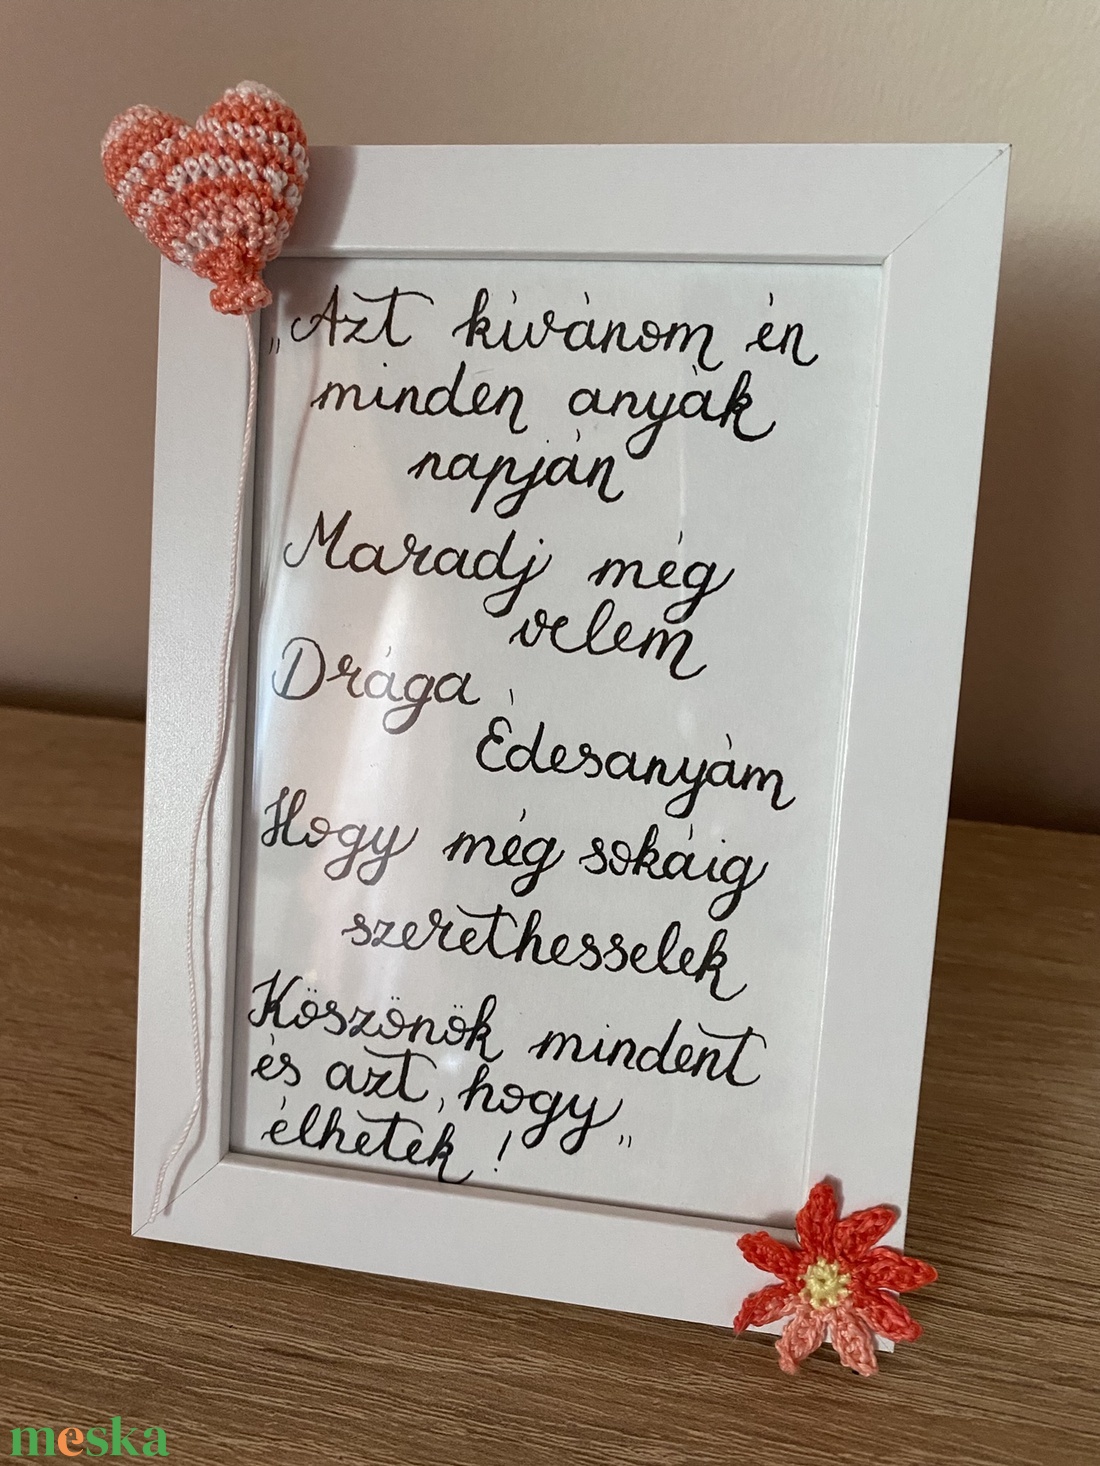 „Azt kívánom én
minden anyák
napján
Maradj még
velem
Drága
Édesanyám
Hogy még sokáig
szerethesselek
Köszönök mindent
és azt, hogy
élhetek!”
meska